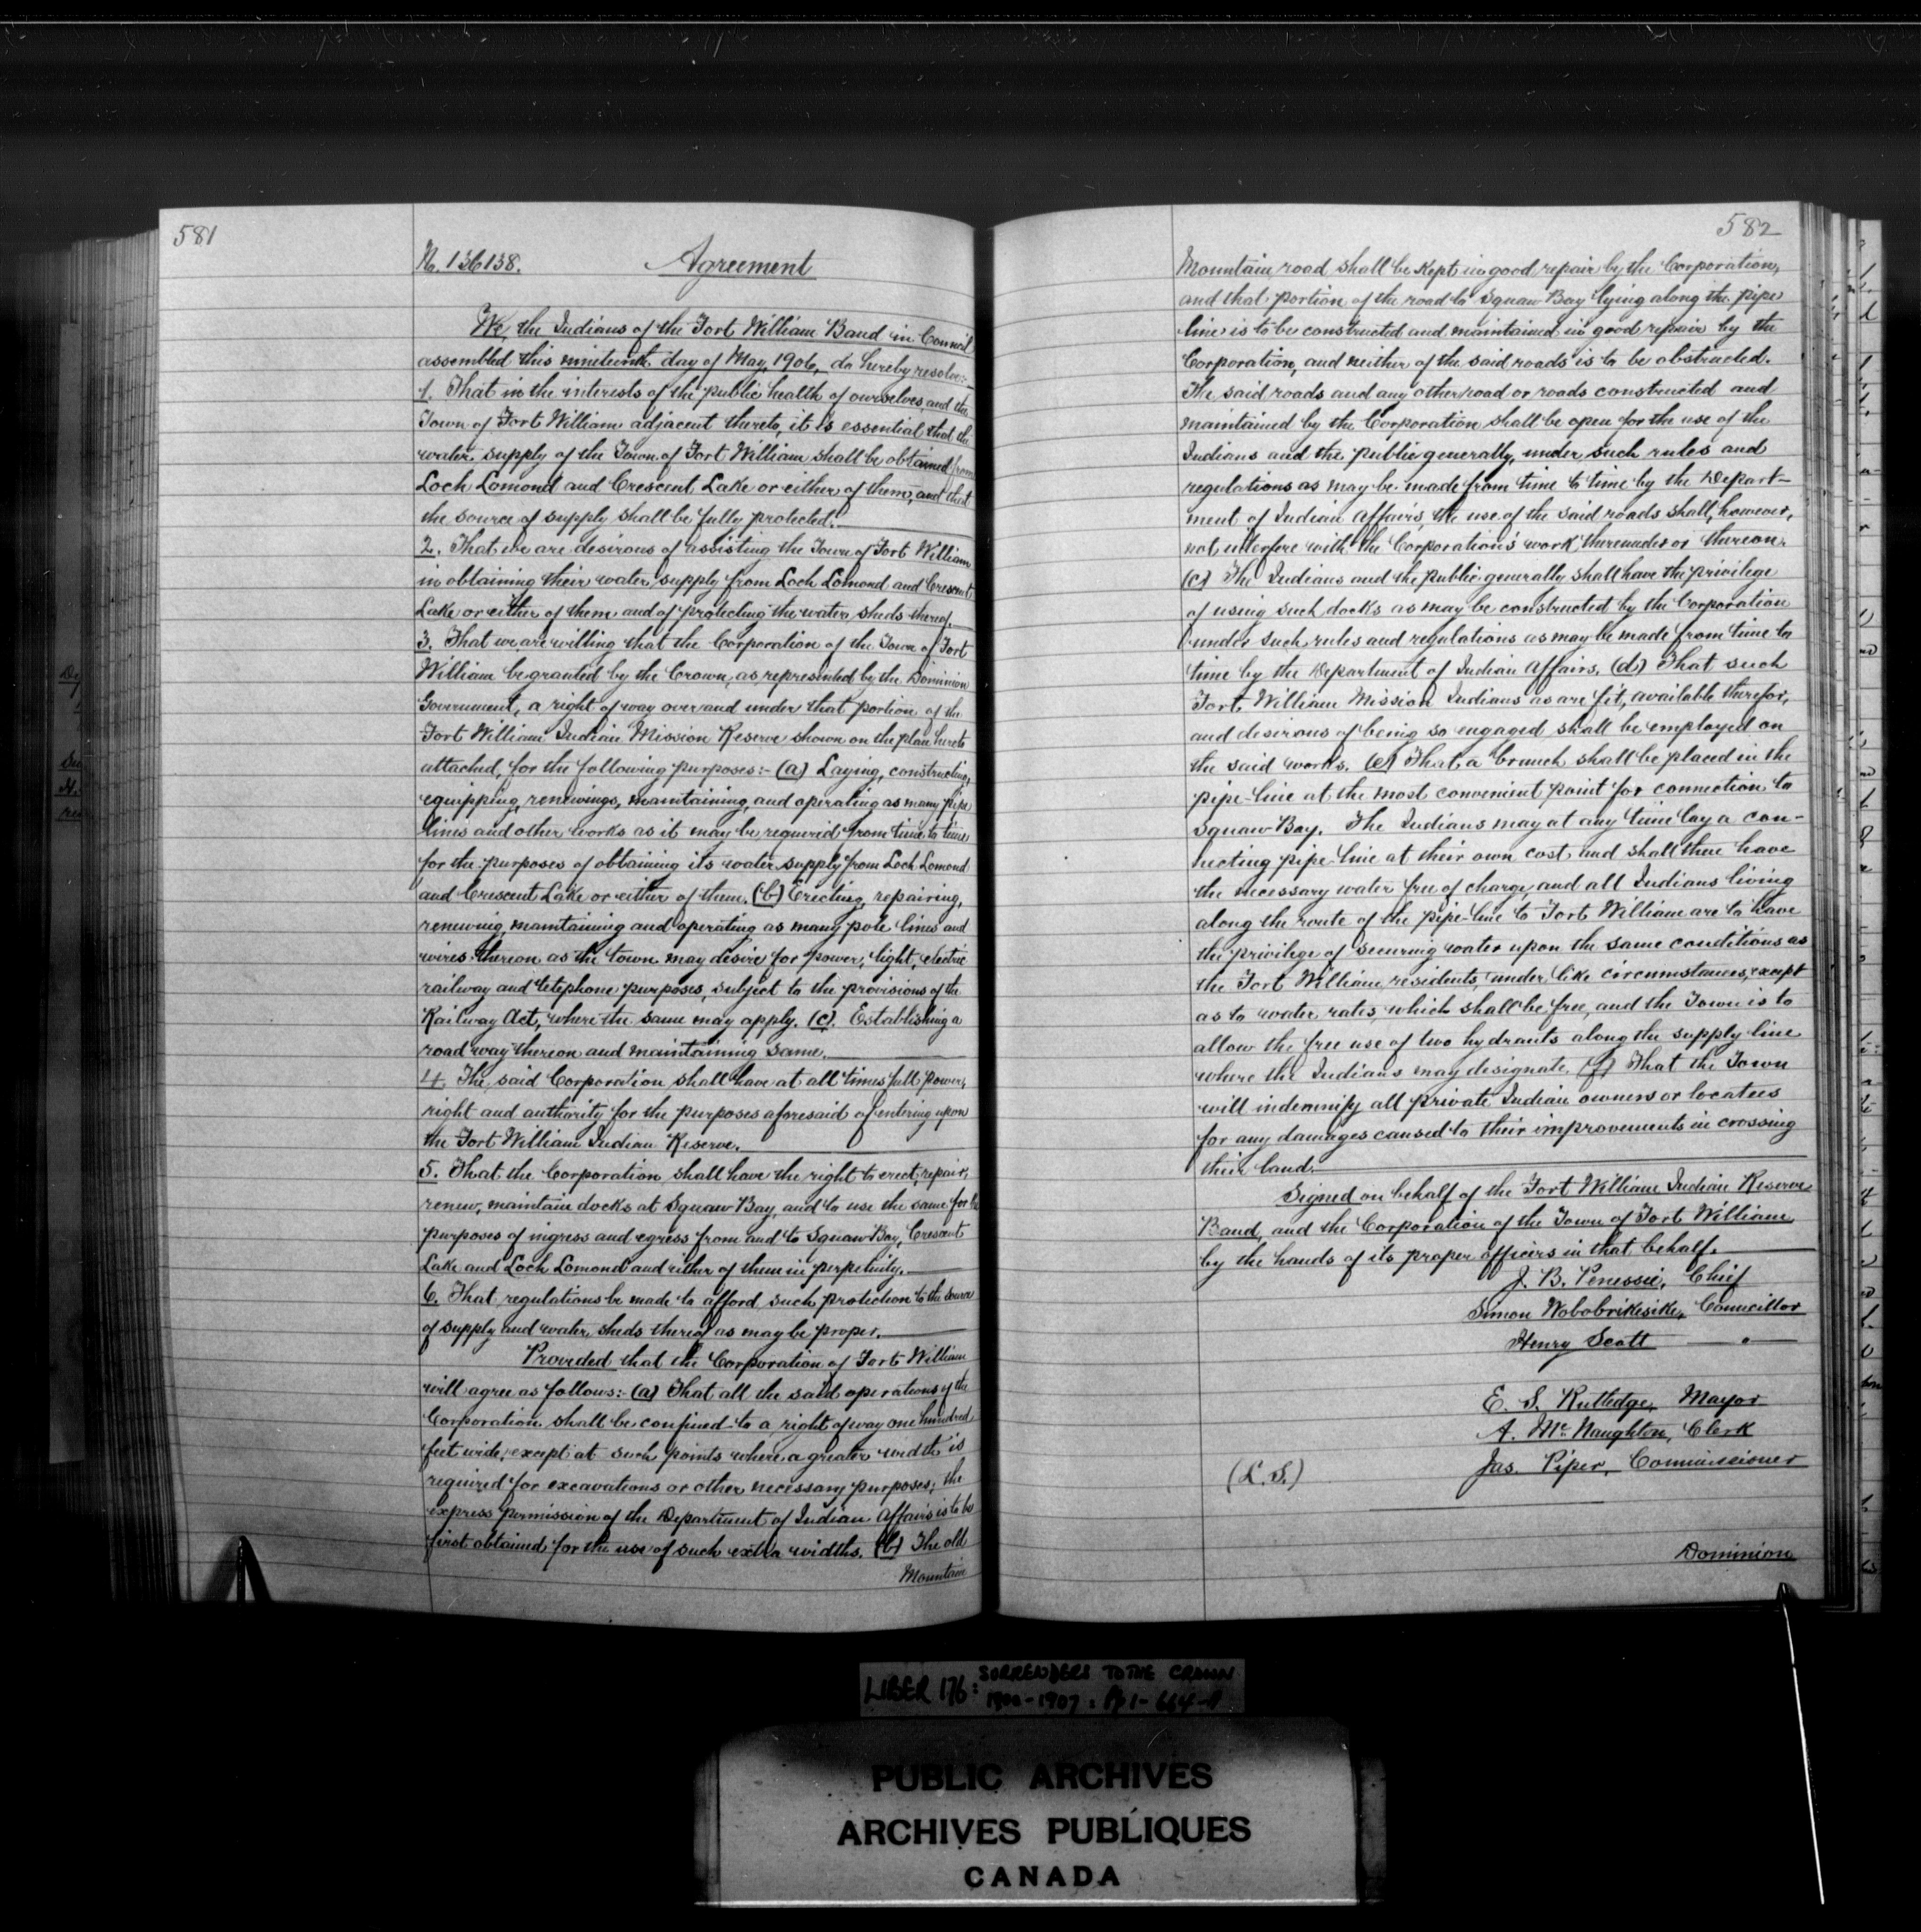 581
No. 136138. Agreement
We, the Indians of the Fort William Band in Council
assembled this nineteenth day of May, 1906, do hereby resolve:-
1. That in the interests of the public health of ourselves, and the
Town of Fort William adjacent thereto, it is essential that the
water supply of the Town of Fort William shall be obtained from
Loch Lomond and Crescent Lake or either of them, and that
the source of supply shall be fully protected.
2. That we are desirous of assisting the Town of Fort William
in obtaining their water supply from Loch Lomond and Crescent
Lake or either of them and of protecting the water sheds thereof.
3. That we are willing that the Corporation of the Town of Fort
William be granted by the Crown, as represented by the Dominion
Government, a right of way over and under that portion of the
Fort William Indian Mission Reserve shown on the plan hereto
attached, for the following purposes:- (a) Laying, constructing,
equipping, renewings, maintaining, and operating as many pipe
lines and other works as it may be required from time to time
for the purposes of obtaining its water supply from Loch Lomond
and Crescent Lake or either of them. (b) Erecting, repairing,
renewing, maintaining and operating as many pole lines and
wires thereon as the town may desire for power, light, electric
railway and telephone purposes, subject to the provisions of the
Railway Act, where the same may apply. (c). Establishing a
road way thereon and maintaining same.
4. The said Corporation shall have at all times full power,
right and authority for the purposes aforesaid of entering upon
the Fort William Indian Reserve.
5. That the Corporation shall have the right to erect, repair,
renew, maintain docks at Squaw Bay, and to use the same for the
purposes of ingress and egress from and to Squaw Bay, Crescent
Lake and Loch Lomond and either of them in perpetuity.
6. That regulations be made to afford such protection to the source
of supply and water sheds thereof as may be proper.
Provided that the Corporation of Fort William
will agree as follows:- (a) That all the said operations of the
Corporation shall be confined to a right of way one hundred
feet wide, except at such points where a greater width is
required for excavations or other necessary purposes; the
express permission of the Department of Indian Affairs is to be
first obtained for the use of such extra widths. (b) The old
Mountain
582
Mountain road shall be kept in good repair by the Corporation,
and that portion of the road to Squaw Bay lying along the pipe
line is to be constructed and maintained in good repair by the
Corporation, and neither of the said roads is to be obstructed.
The said roads and any other road or roads constructed and
maintained by the Corporation shall be open for the use of the
Indians and the public generally, under such rules and
regulations as may be made from time to time by the Depart-
ment of Indian Affairs, the use of the said roads shall, however,
not interfere with the Corporation's work thereunder or thereon.
(c) The Indians and the public generally shall have the privilege
of using such docks as may be constructed by the Corporation
under such rules and regulations as may be made from time to
time by the Department of Indian Affairs. (d) That such
Fort William Mission Indians as are fit, available therefor,
and desirous of being so engaged shall be employed on
the said works. (e) That a branch shall be placed in the
pipe-line at the most convenient point for connection to
Squaw Bay. The Indians may at any time lay a con-
necting pipe line at their own cost and shall then have
the necessary water free of charge, and all Indians living
along the route of the pipe-line to Fort William are to have
the privilege of securing water upon the same conditions as
the Fort William residents, under like circumstances, except
as to water rates, which shall be free, and the Town is to
allow the free use of two hydrants along the supply line
where the Indians may designate. (f) That the Town
will indemnify all private Indian owners or locatees
for any damages caused to their improvements in crossing
their land.
Signed on behalf of the Fort William Indian Reserve
Band, and the Corporation of the Town of Fort William
by the hands of its proper officers in that behalf.
J. B. Penessie, Chief
Simon Wobobrikisike, Councillor
Henry Scott "
E. S. Rutledge, Mayor
A. McNaughton, Clerk
(L.S.) Jas. Piper, Commissioner
Dominion
LIBER 176: SURRENDERS TO THE CROWN
1900-1907: Pp 1-664-A
PUBLIC ARCHIVES
ARCHIVES PUBLIQUES
CANADA